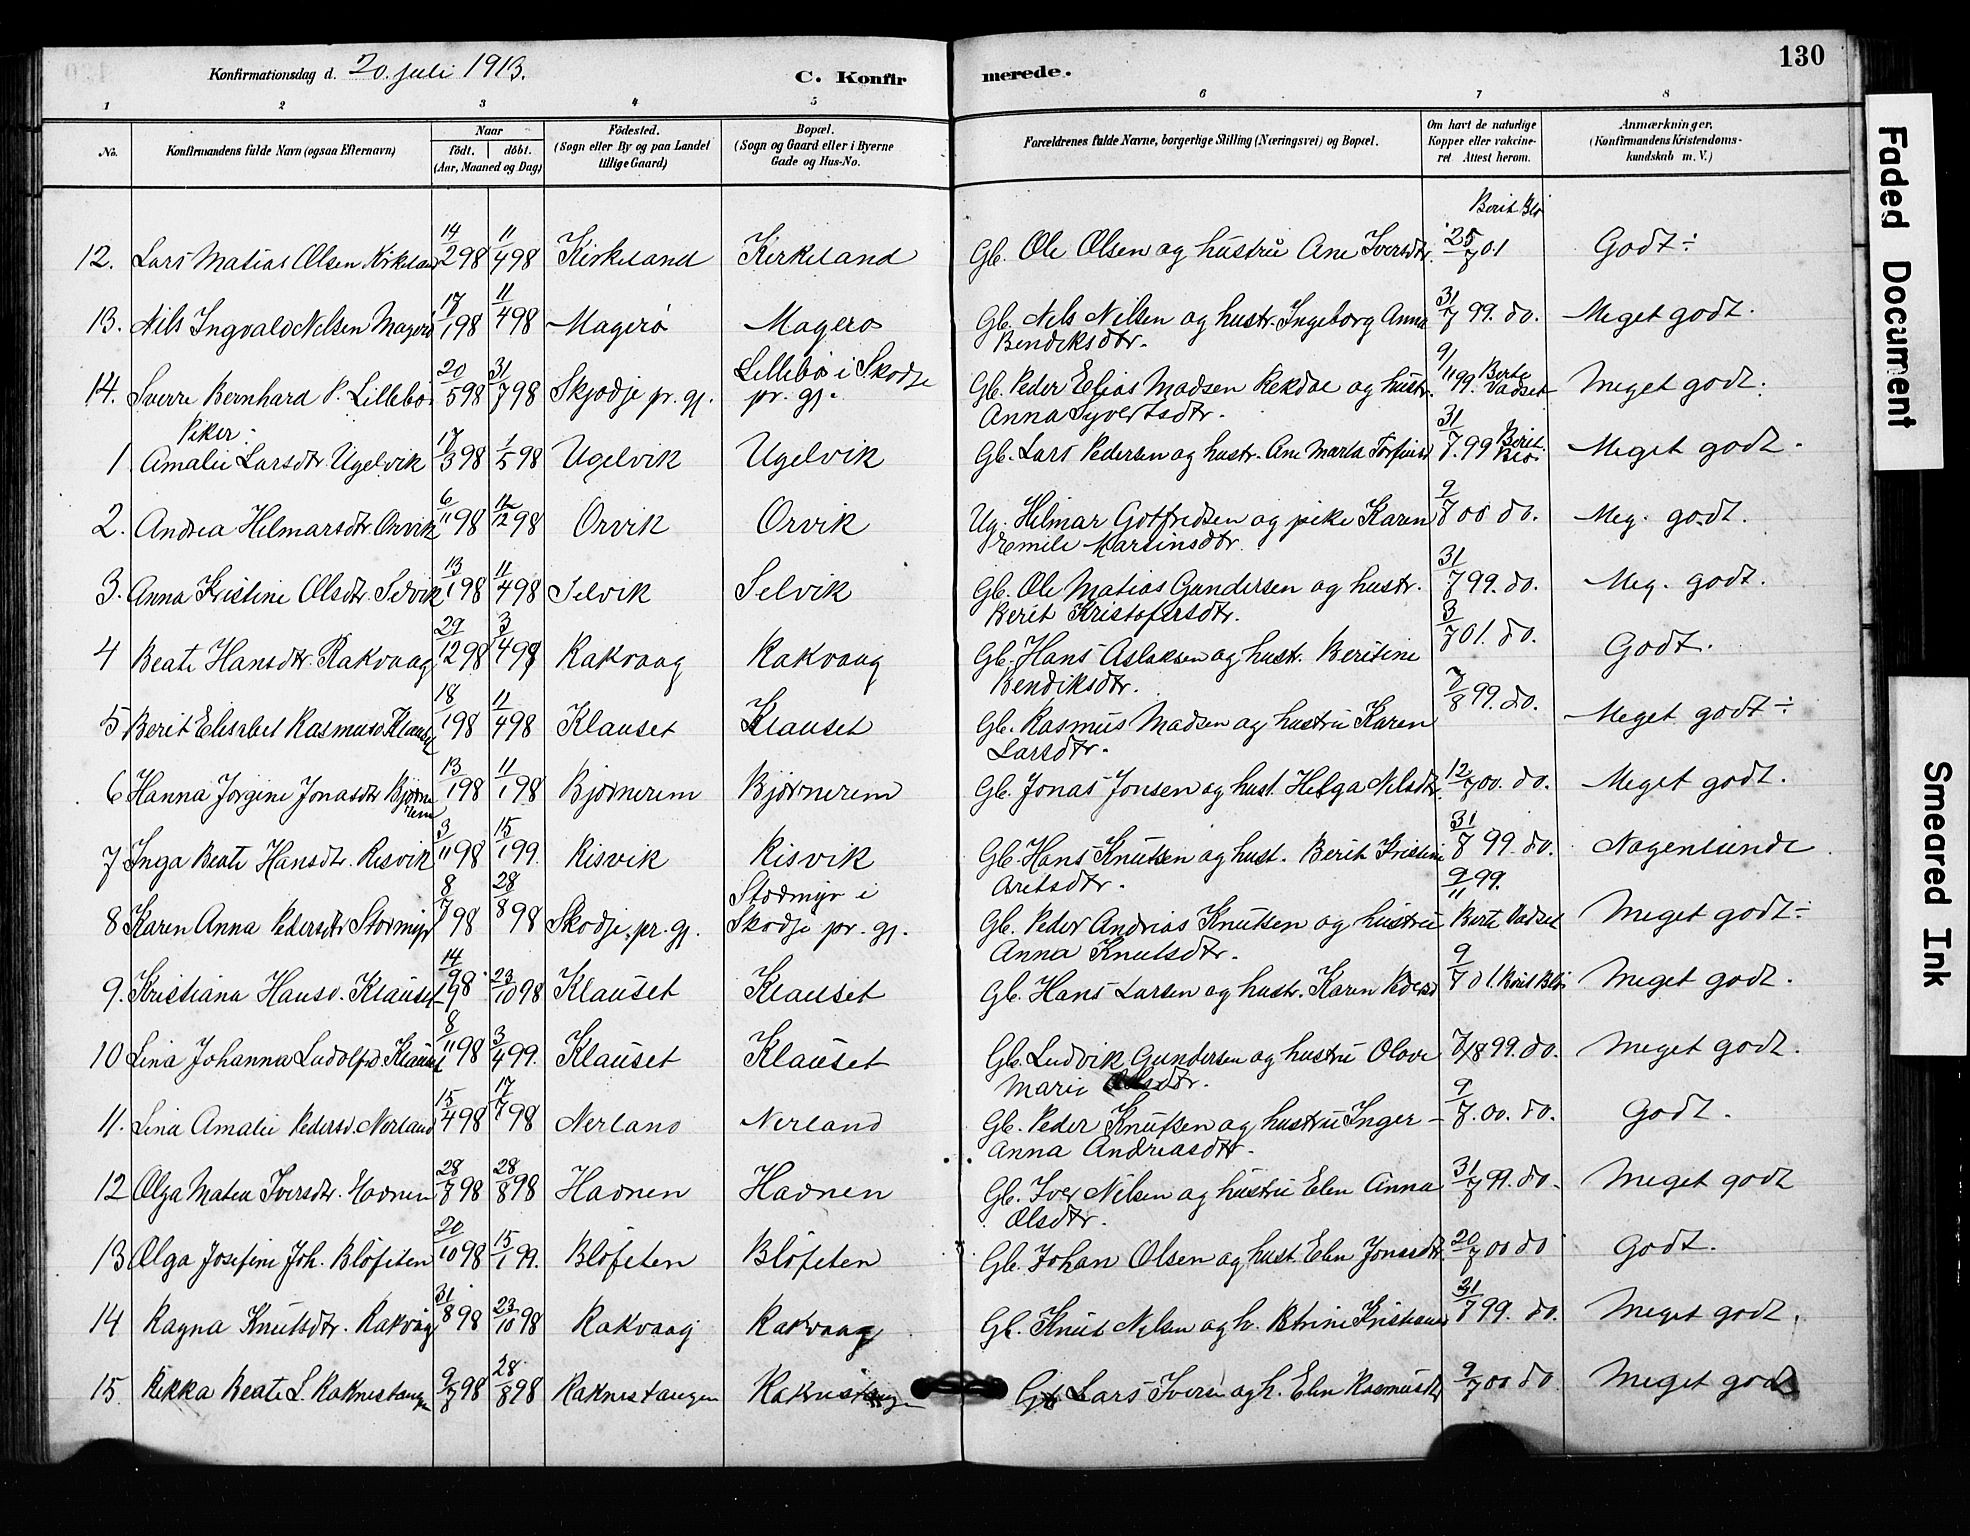 130
Konfirmationsdag d. 20. juli 1913.
C. Konfirmerede.
1 2 3 4 5 6 7 8
No. Konfirmandens fulde Navn (ogsaa Efternavn) Naar födt. döbt. (Aar, Maaned og Dag) Födested. (Sogn eller By og paa Landet tillige Gaard) Bopæl. (Sogn og Gaard eller i Byerne Gade og Hus-No. Forældrenes fulde Navne, borgerlige Stilling (Næringsvei) og Bopæl. Om havt de naturlige Kopper eller vakcineret Attest herom. Anmærkninger. (Konfirmandens Kristendomskundskab m. V.)
Berit Blø
12. Lars Matias Olsen Kirkeland 14/2 98 11/4 98 Kirkeland Kirkeland Gb. Ole Olsen og hustru Ane Iversdtr. 25/7 01 Godt ÷
13. Nils Ingvald Nelsen Magerø 17/1 98 11/4 98 Magerø Magerø Gb. Nels Nilsen og hustr. Ingeborg Anna 31/7 99. do. Meget godt.
Bendiksdtr.
14. Sverre Bernhard P. Lillebø 20/5 98 31/7 98 Skjodje pr. gj. Lillebø i Skodje pr. gj. Gb. Peder Elias Madsen Rekdal og hustr. 9/11 99. Berte Vadset Meget godt.
Anna Syvertsdtr.
Piker:
1 Amalie Larsdtr Ugelvik 17/3 98 1/5 98 Ugelvik Ugelvik Gb. Lars Pedersen og hustr. Ane Marta 31/7. 99 Berit Blø. Meget godt.
2. Andrea Hilmarsdtr. Orvik 6/11 98 11/12 98 Orvik Orvik Ug. Hilmar Gotfredsen og pike Karen 9/7 00 do. Meg. godt.
Emilie Martinsdtr.
3. Anna Kristine Olsdtr. Selvik 13/1 98 11/4 98 Selvik Selvik Gb. Ole Matias Gundersen og hustr. 31/7 99. do. Meg. godt.
Berit Kristofersdtr.
4 Beate Hansdtr. Rakvaag 29/12 98 3/4 98 Rakvaag Rakvaag Gb. Hans Aslaksen og hust. Beritine 3/7 01. do. Godt.
Bendiksdtr.
5 Berit Elisabet Rasmusd. Klauset 18/1 98 11/4 98 Klauset Klauset Gb. Rasmus Madsen og hustru Karen 7/8 99. do. Meget godt ÷
Larsdtr.
6 Hanna Jørgine Jonasdtr Bjørnerem 13/1 98 11/1 98 Bjørnerem Bjørnerem Gb. Jonas Jonsen og hust. Helga Nilsdtr. 12/7 00. do. Meget godt.
7 Inga Beate Hansdtr. Risvik 3/11 98 15/1 99. Risvik Risvik Gb. Hans Knutsen og hust. Berit Kristine 31/8 99. do. Nogenlunde
Aretsdtr.
8 Karen Anna Pedersdtr Stormyr 8/7 98 28/8 98 Skodje pr. gj. Stormyr i Skodje pr. gj. Gb. Peder Andrias Knutsen og hustru 9/11 99. Berte Vadset Meget godt ÷
Anna Knutsdtr.
9. Kristiana Hansd. Klauset 14/9 98 23/10 98 Klauset Klauset Gb. Hans Larsen og hustr. Karen 9/7 01. Berit Blø Meget godt.
10 Lina Johanna Ludolfsd. Klauset 8/11 98 3/4 99. Klauset Klauset Gb. Ludvik Gundersen og hustru Olave 7/8 99. do. Meget godt.
Marie Olsdtr.
11. Lina Amalie Pedersd. Nerland 15/4 98 17/7 98 Nerland Nerland Gb. Peder Knutsen og hustru Inger 9/7. 00. do. Godt.
Anna Andreasdtr.
12 Olga Matea Iversdtr. Havnen 28/7 98 28/8 98 Havnen Havnen Gb. Iver Nilsen og hustru Elen Anna 31/7 99. do. Meget godt
Olsdtr.
13 Olga Josefine Joh. Bløfeten 20/10 98 15/1 99. Bløfeten Bløfeten Gb. Johan Olsen og hust. Elen Jonasdtr. 20/7 00 do Godt.
14 Ragna Knutsdtr. Rakvåg 31/8 98 23/10 98 Rakvaag Rakvaag Gb. Knut Nilsen og h. Petrine 31/7 99. do. Meget godt.
15 Rikka Beate L. Raknestangen 9/7 98 28/8 98 Raknestangen Raknestangen Gb Lars Iversen og h. Elen Rasmusdtr 9/7 00 do Meget godt
Faded Document
Smeared Ink